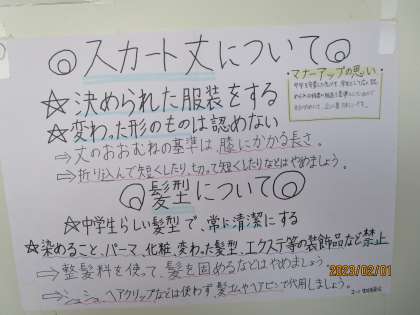 ◎スカート丈について◎
☆決められた服装をする
☆変わった形のものは認めない
⇒丈のおおむねの基準は、膝にかかる長さ。
⇒折り込んで短くしたり、切って短くしたりなどはやめましょう。
・マナーアップの思い・
◎髪型について◎
☆中学生らしい髪型で、常に清潔にする
☆染めること、パーマ、化粧、変わった髪型、エクステ等の装飾品など禁止
⇒整髪料を使って、髪を固めるなどはやめましょう
⇒シュシュ、ヘアクリップなどは使わず、髪ゴムやヘアピンで代用しましょう。
2023/02/01